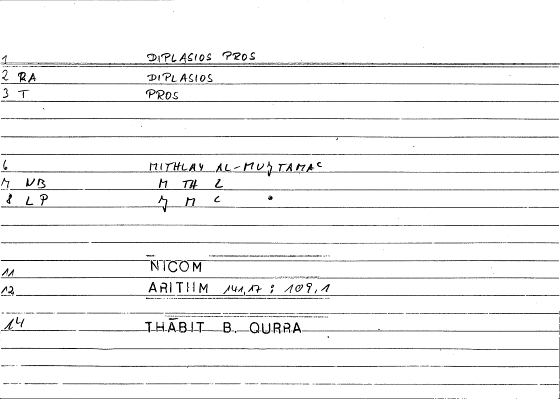 1 DIPLASIOS PROS
2 RA DIPLASIOS
3 T PROS
6 MITHLAY AL-MUǦTAMAʿ
7 NB M TH L
8 LP Ǧ M ʿ
11 NICOM
12 ARITHM 141,17 ; 109,1
14 THĀBIT B. QURRA